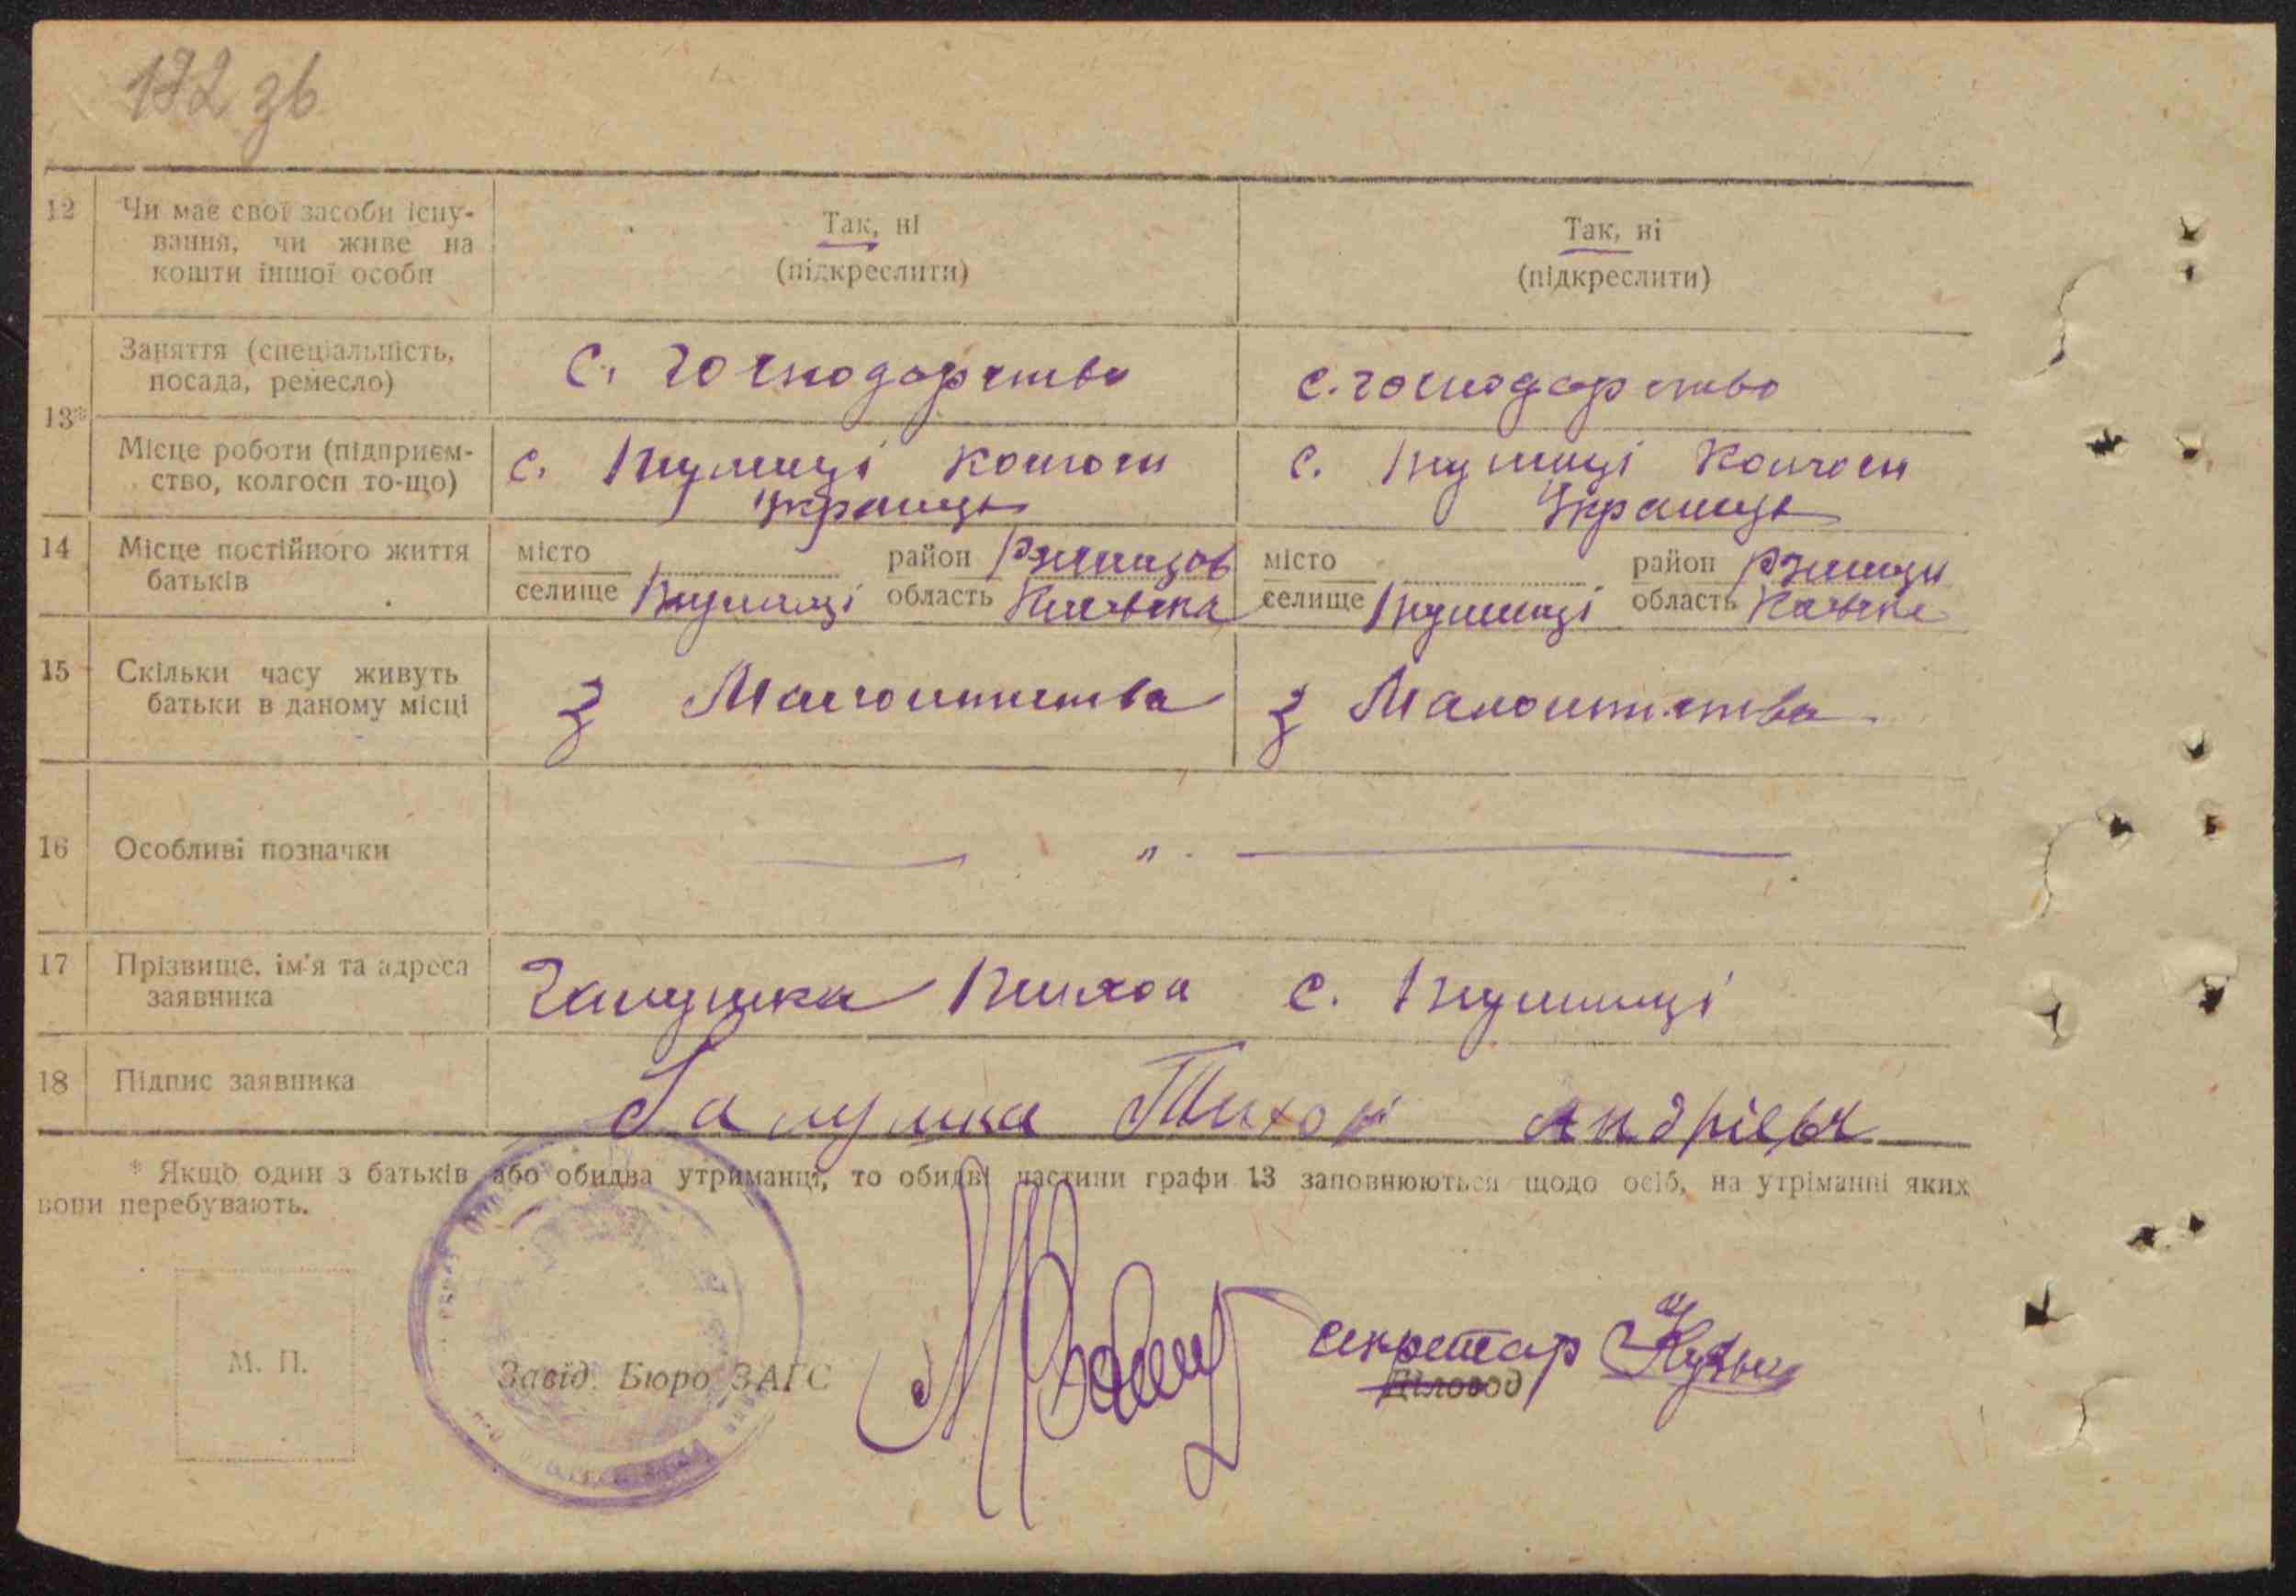 172 зв
12 Чи має свої засоби існу-
вання, чи живе на
кошти іншої особи
Так, ні
(підкреслити)
Так, ні
(підкреслити)
13*
Заняття (спеціальність,
посада, ремесло)
С. господарство
с. господарство
Місце роботи (підприєм-
ство, колгосп то-що)
с. Пуминці колгосп
с. Пуминці Колгосп
14 Місце постійного життя
батьків
місто район Ржищов
селище Пуминці область Київська
місто район Ржищ
селище Пуминці область
15 Скільки часу живуть
батьки в даному місці
З Малолітства
З Малолітства
16 Особливі позначки
— " —
17 Прізвище, ім'я та адреса
заявника
Галушка Тихон с. Пуминці
18 Підпис заявника
Галушка Тихон Андрієв
* Якщо один з батьків або обидва утриманці, то обидві частини графи 13 заповнюються щодо осіб, на утріманні яких
вони перебувають.
М. П.
Завід. Бюро ЗАГС
секретар
Діловод